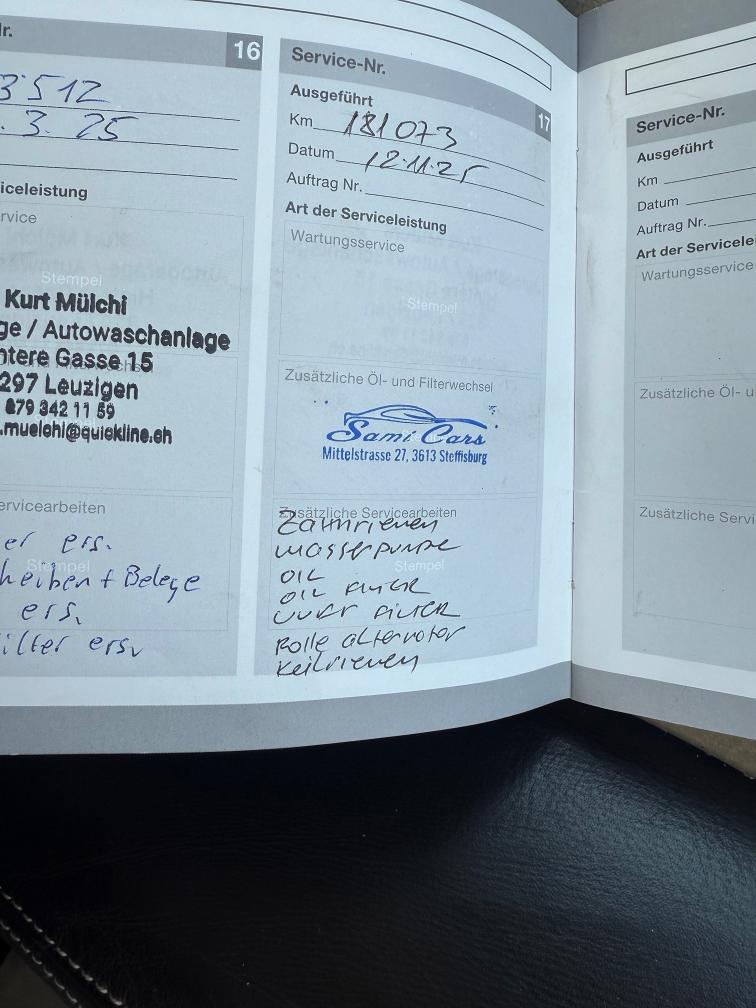 r.
16
3'512
. 3. 25
iceleistung
rvice
Stempel
Kurt Mülchi
ge / Autowaschanlage
ntere Gasse 15
297 Leuzigen
079 342 11 59
.muelchi@quickline.ch
ervicearbeiten
er ers.
Stempel
heiben + Belege
ers.
ilter ers.
Service-Nr.
17
Ausgeführt
Km 181073
Datum 12.11.25
Auftrag Nr.
Art der Serviceleistung
Wartungsservice
Stempel
Zusätzliche Öl- und Filterwechsel
Sami Cars
Mittelstrasse 27, 3613 Steffisburg
Zusätzliche Servicearbeiten
Zahnriemen
Wasserpumpe
Stempel
OIL
OIL FILTER
FILTER
Rolle alternator
Keilriemen
Service-Nr.
Ausgeführt
Km
Datum
Auftrag Nr.
Art der Servicelei
Wartungsservice
Zusätzliche Öl- u
Zusätzliche Servi